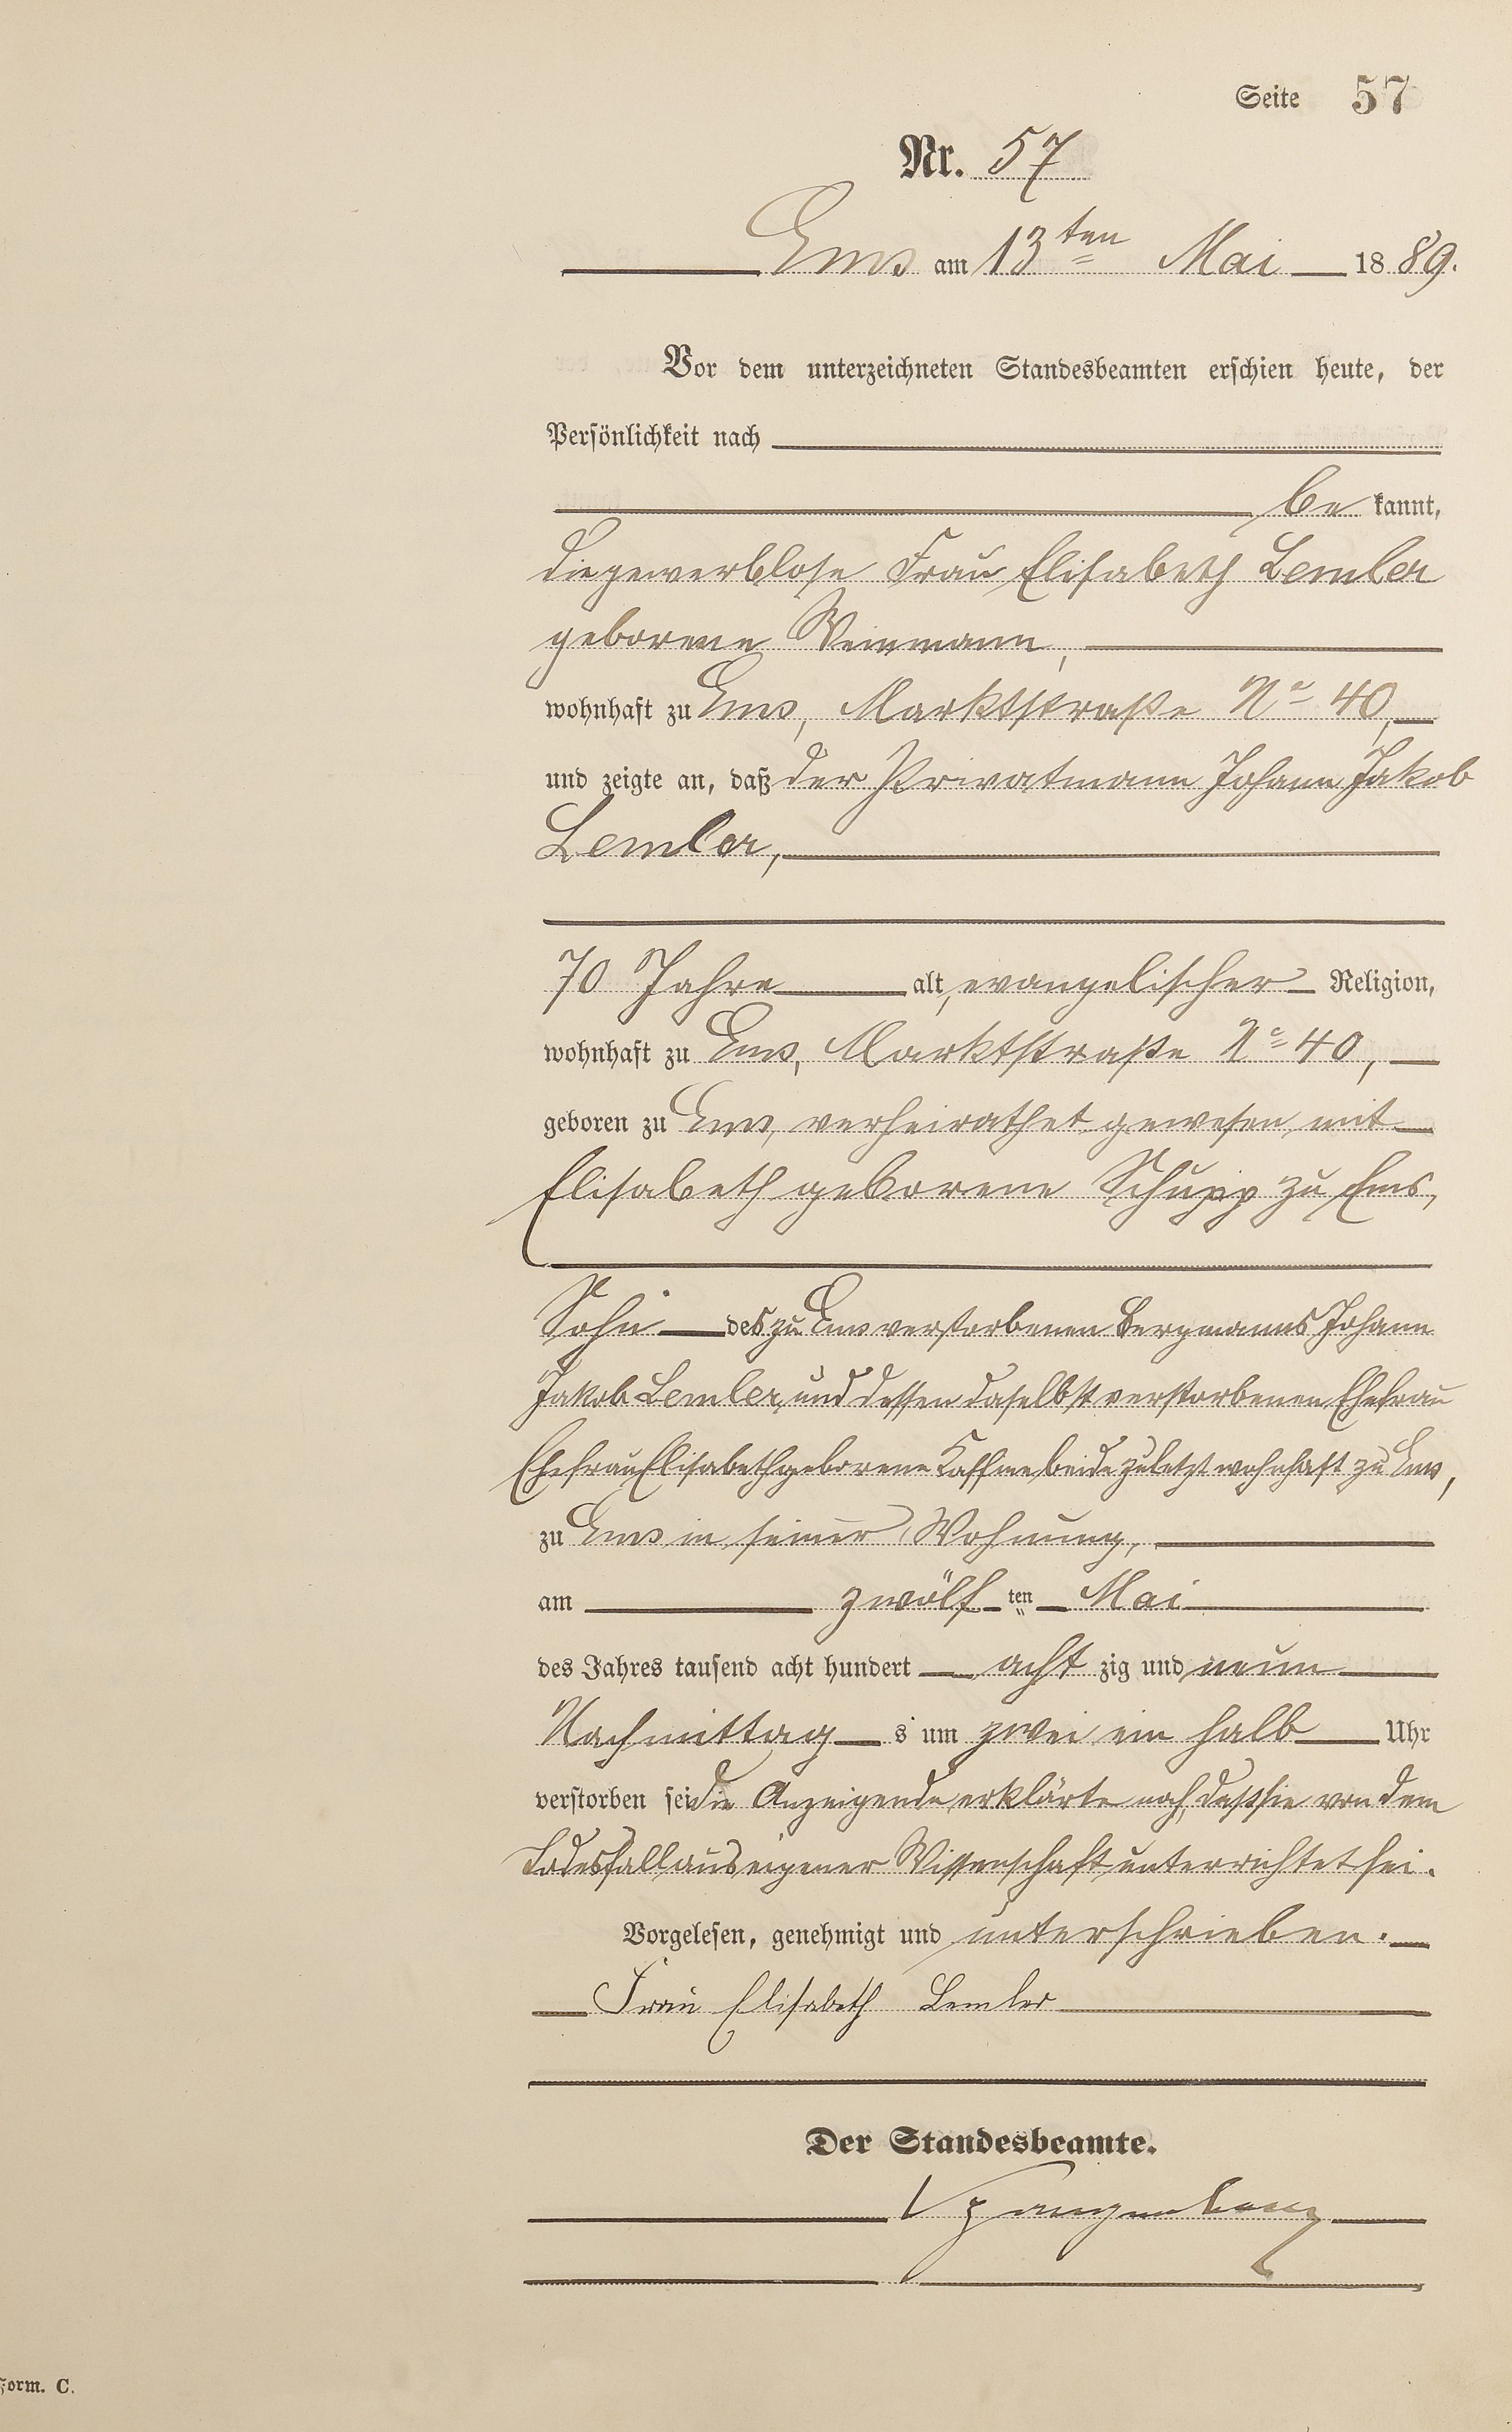 Seite 57
Nr. 57
Ems am 13ten Mai 1889.
Vor dem unterzeichneten Standesbeamten erschien heute, der
Persönlichkeit nach
be kannt,
die gewerblose Frau Elisabeth Lemler
geborene Weinmann,
wohnhaft zu Ems, Marktstraße No 40,
und zeigte an, daß der Privatmann Johann Jakob
Lemler,
70 Jahre alt, evangelischer Religion,
wohnhaft zu Ems, Marktstraße No 40,
geboren zu Ems, verheirathet gewesen mit
Elisabeth geborene Schupp zu Ems,
Sohn des zu Ems verstorbenen Bergmanns Johann
Jakob Lemler und dessen daselbst verstorbenen Ehefrau
Ehefrau Elisabeth geborene beide zuletzt wohnhaft zu Ems,
zu Ems in seiner Wohnung,
am zwölf ten Mai
des Jahres tausend acht hundert acht zig und neun
Nachmittag s um zwei ein halb Uhr
verstorben sei die Anzeigende erklärte noch, daß sie von dem
Todesfall aus eigener Wissenschaft unterrichtet sei.
Vorgelesen, genehmigt und unterschrieben.
Frau Elisabeth Lemler
Der Standesbeamte.
Form. C.